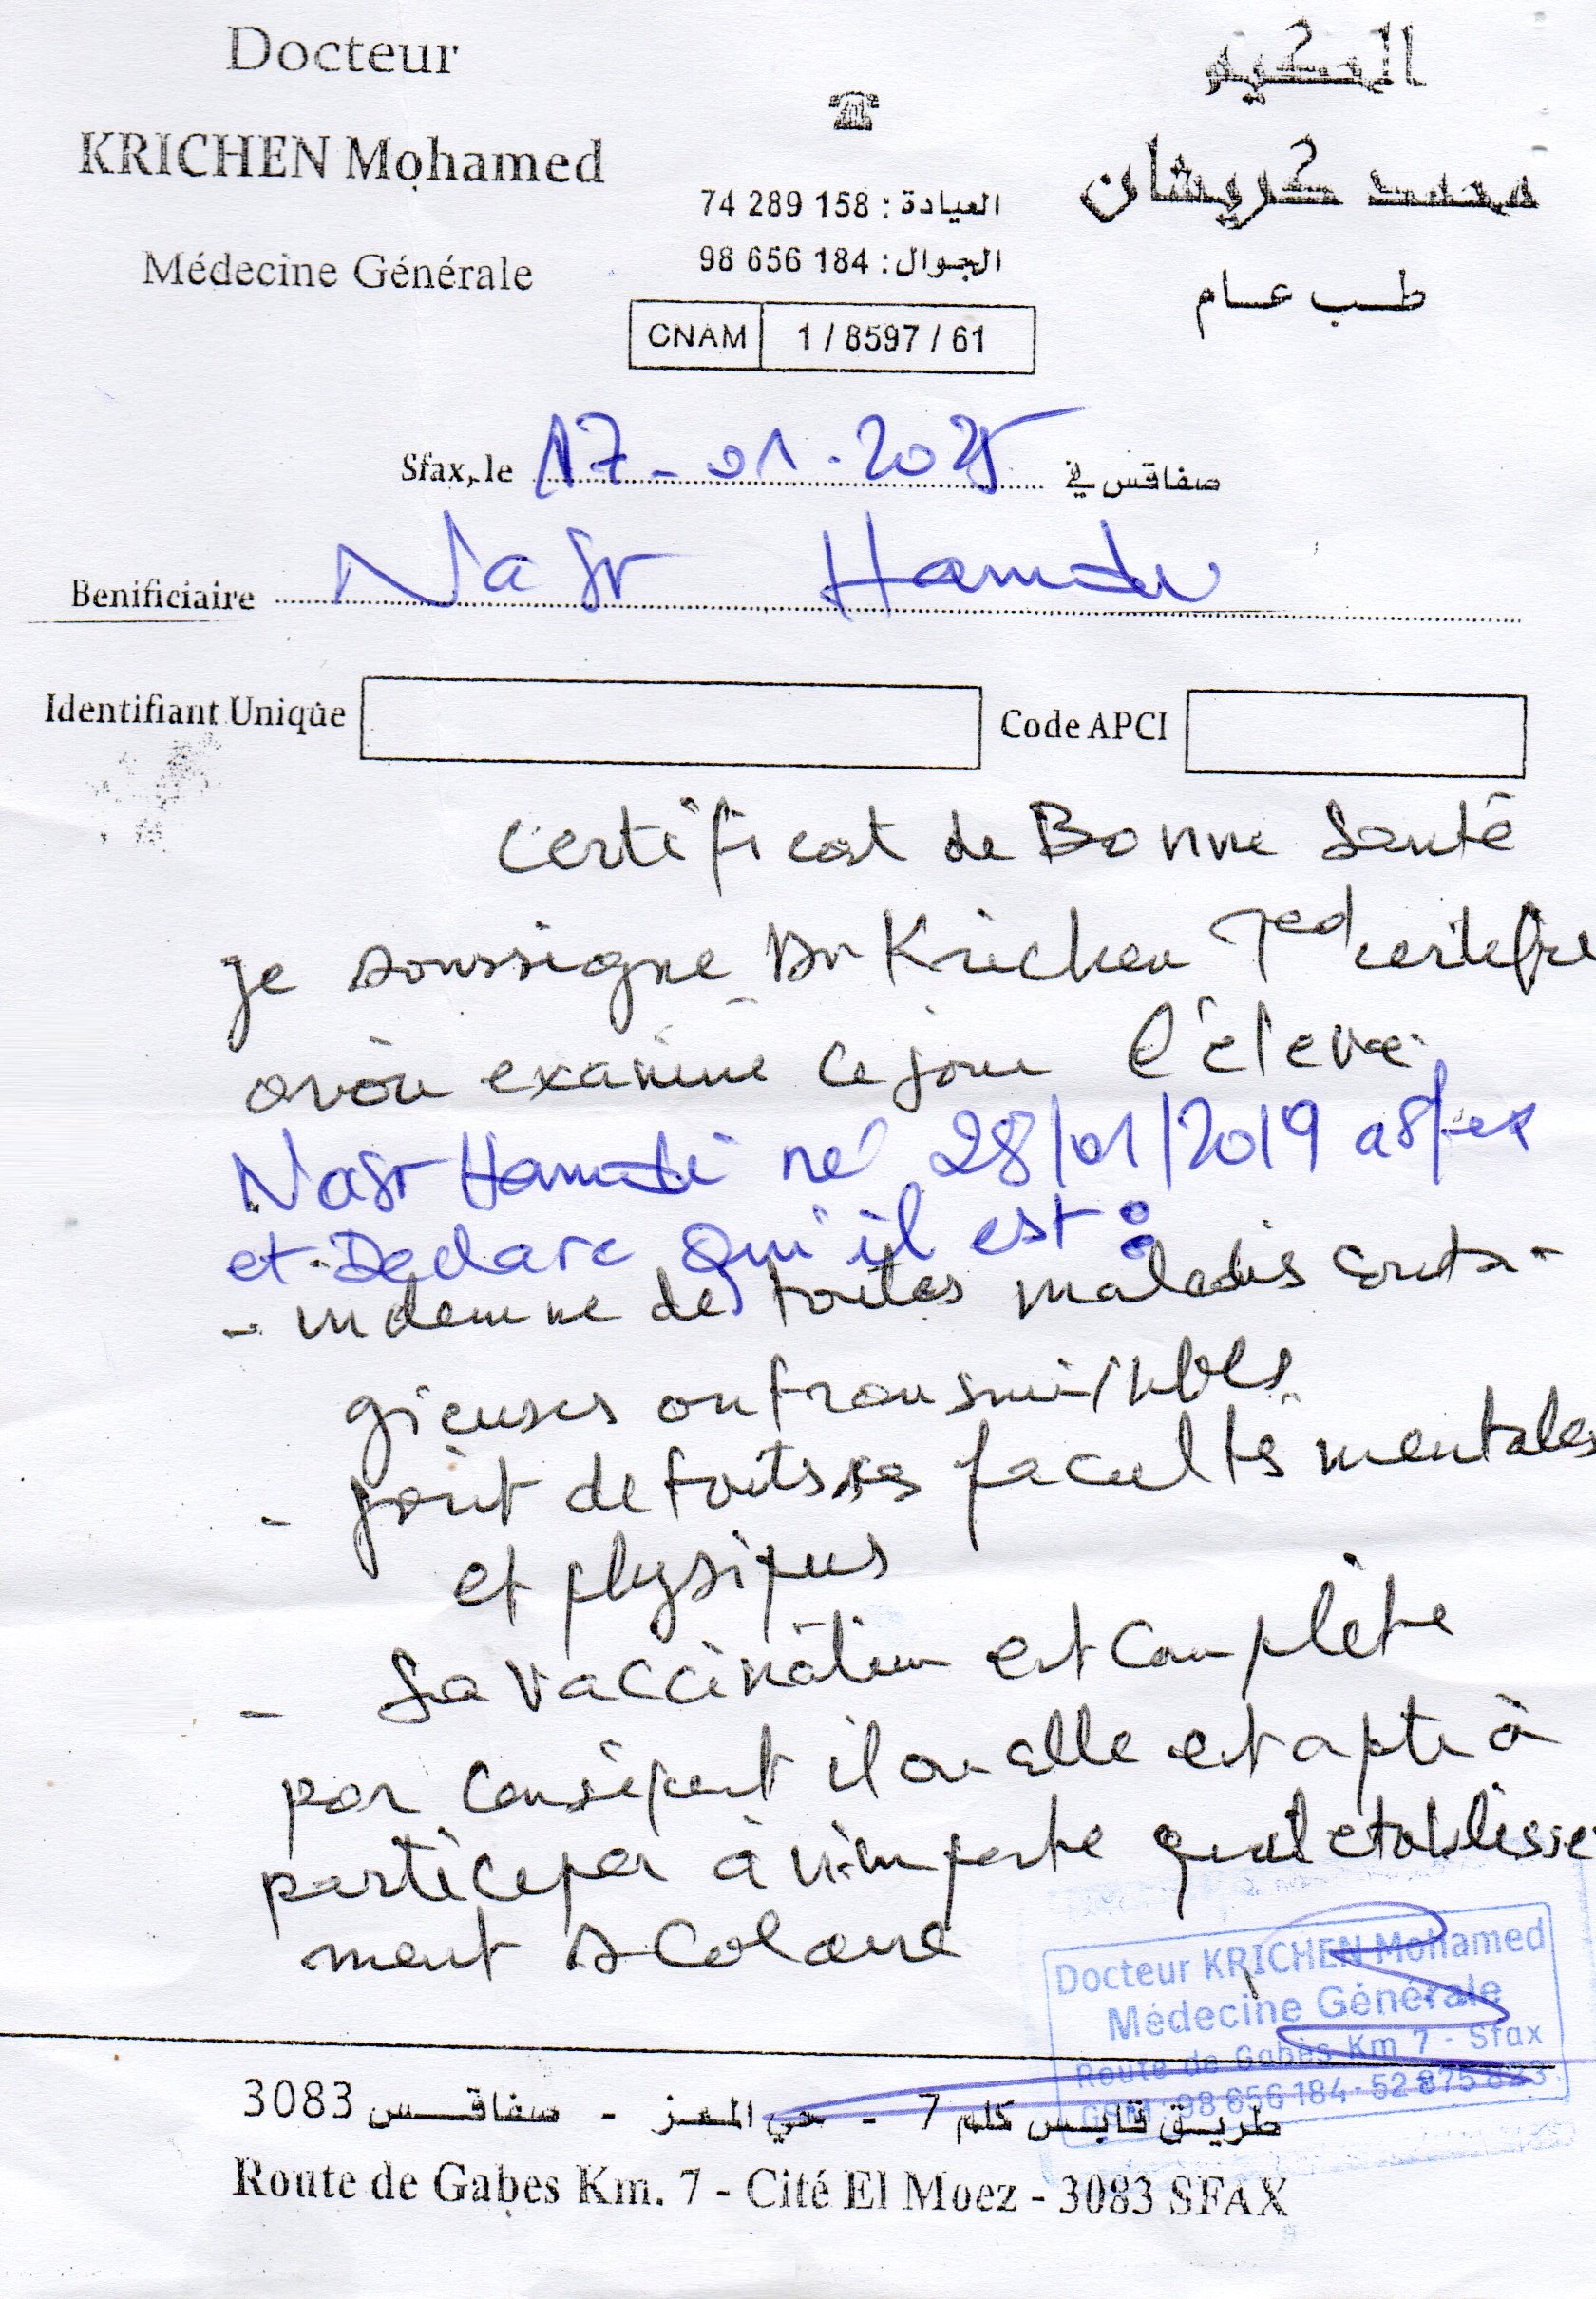 Docteur
KRICHEN Mohamed
Médecine Générale
العيادة : 158 289 74
الجوال : 184 656 98
CNAM 1 / 8597 / 61
الحكيم
محمد كريشان
طب عام
Sfax, le 17-01-2025 صفاقس في
Benificiaire Nasr Hamdi
Identifiant Unique Code APCI
Certificat de Bonne Santé
je soussigne Dr Krichen Med certifie
avoir examiné ce jour l'éleve
Nasr Hamdi né 28/01/2019 a Sfax
et Declare Qu'il est :
- indemne de toutes maladies conta-
gieuses ou transmissibles
- jouit de toutes ses facultés mentales
et physiques
- Sa vaccination est complète
par conséquent il ou elle est apte à
participer à n'importe quel etablisse
ment scolaire
Docteur KRICHEN Mohamed
Médecine Générale
Route de Gabès Km 7 - Sfax
GSM : 98 656 184 - 52 875 823
طريق قابس كلم 7 - حي المعز - صفاقس 3083
Route de Gabes Km. 7 - Cité El Moez - 3083 SFAX